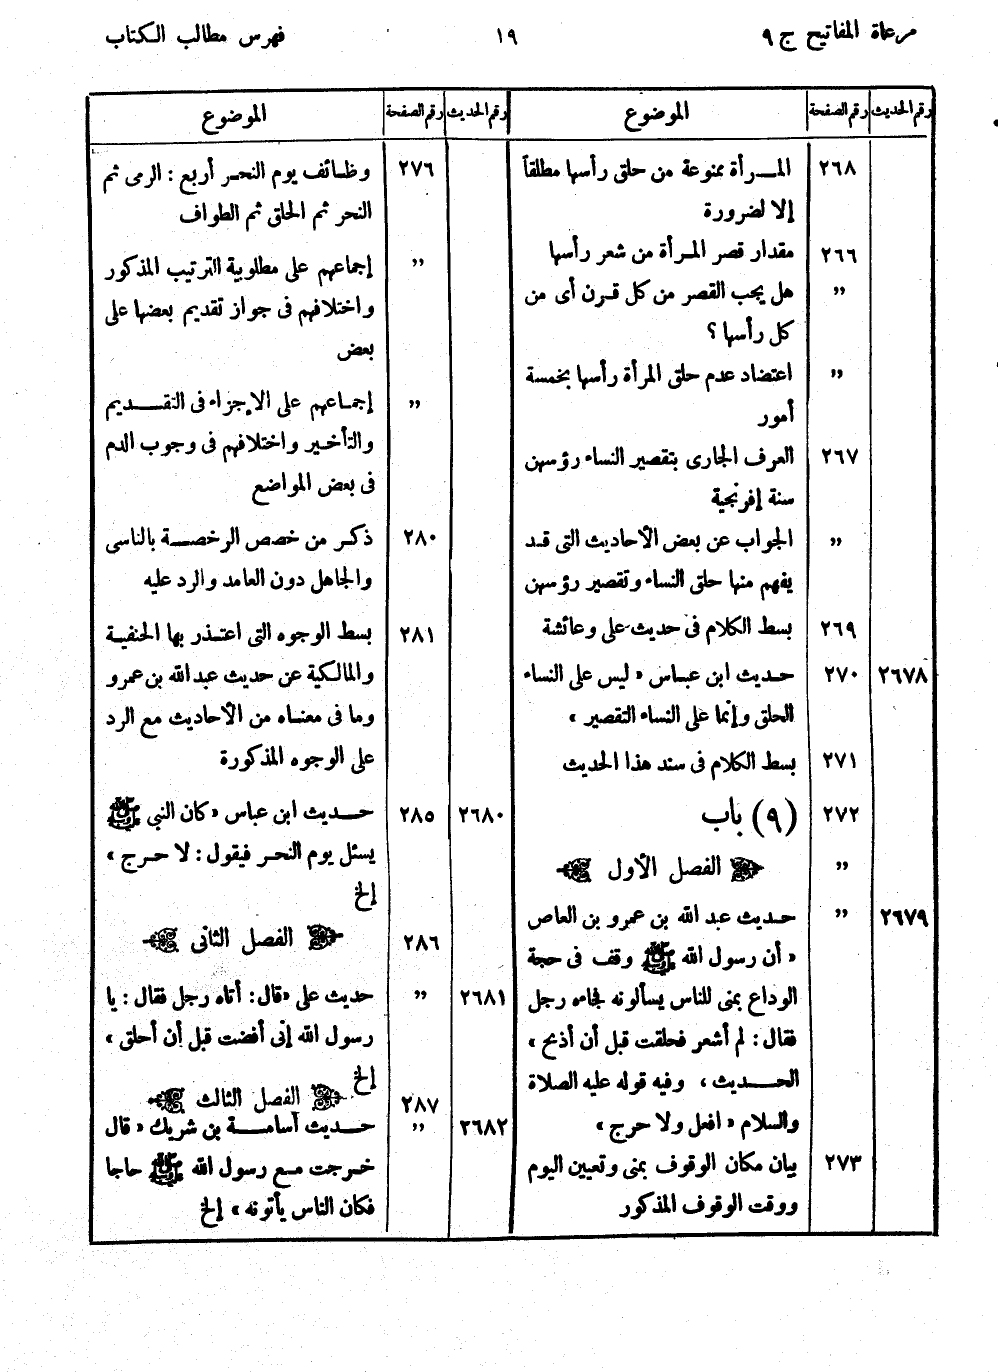 مرعاة المفاتيح ج ٩ ١٩ فهرس مطالب الكتاب
رقم الحديث رقم الصفحة الموضوع
٢٦٨ المـرأة ممنوعة من حلق رأسها مطلقاً
إلا لضرورة
٢٦٦ مقدار قصر المـرأة من شعر رأسها
,, هل يجب القصر من كل قرن أى من
كل رأسها ؟
,, اعتضاد عدم حلق المرأة رأسها بخمسة
أمور
٢٦٧ العرف الجارى بتقصير النساء رؤسهن
سنة إفرنجية
,, الجواب عن بعض الأحاديث التى قـد
يفهم منها حلق النساء وتقصير رؤسهن
٢٦٩ بسط الكلام فى حديث على وعائشة
٢٦٧٨ ٢٧٠ حـديث ابن عبـاس « ليس على النساء
الحلق وإنما على النساء التقصير »
٢٧١ بسط الكلام فى سند هذا الحديث
٢٧٢ (٩) باب
,, الفصل الأول
٢٦٧٩ ,, حـديث عبد الله بن عمرو بن العاص
« أن رسول الله ﷺ وقف فى حجة
الوداع بمنى للناس يسألونه فجاءه رجل
فقال : لم أشعر فحلقت قبل أن أذبح »
الحـديث ، وفيه قوله عليه الصلاة
والسلام « افعل ولا حرج »
٢٧٣ بيان مكان الوقوف بمنى وتعيين اليوم
ووقت الوقوف المذكور
رقم الحديث رقم الصفحة الموضوع
٢٧٦ وظـائف يوم النحـر أربع : الرمى ثم
النحر ثم الحلق ثم الطواف
,, إجماعهم على مطلوبية الترتيب المذكور
واختلافهم فى جواز تقديم بعضها على
بعض
,, إجمـاعهم على الإجزاء فى التقـديم
والتأخـير واختلافهم فى وجوب الدم
فى بعض المواضع
٢٨٠ ذكـر من خصص الرخصـة بالناسى
والجاهل دون العامد والرد عليه
٢٨١ بسط الوجوه التى اعتـذر بها الحنفيـة
والمالـكية عن حديث عبد الله بن عمرو
وما فى معنـاه من الأحاديث مع الرد
على الوجوه المذكورة
٢٦٨٠ ٢٨٥ حـديث ابن عباس «كان النبى ﷺ
يسئل يوم النحـر فيقول : لا حـرج »
إلخ
٢٨٦ الفصل الثانى
٢٦٨١ ,, حديث على «قال : أتاه رجل فقال : يا
رسول الله إنى أفضت قبل أن أحلق »
إلخ
٢٨٧ الفصل الثالث
٢٦٨٢ ,, حـديث أسامـة بن شريك « قال
خـرجت مـع رسول الله ﷺ حاجا
فكان الناس يأتونه » إلخ